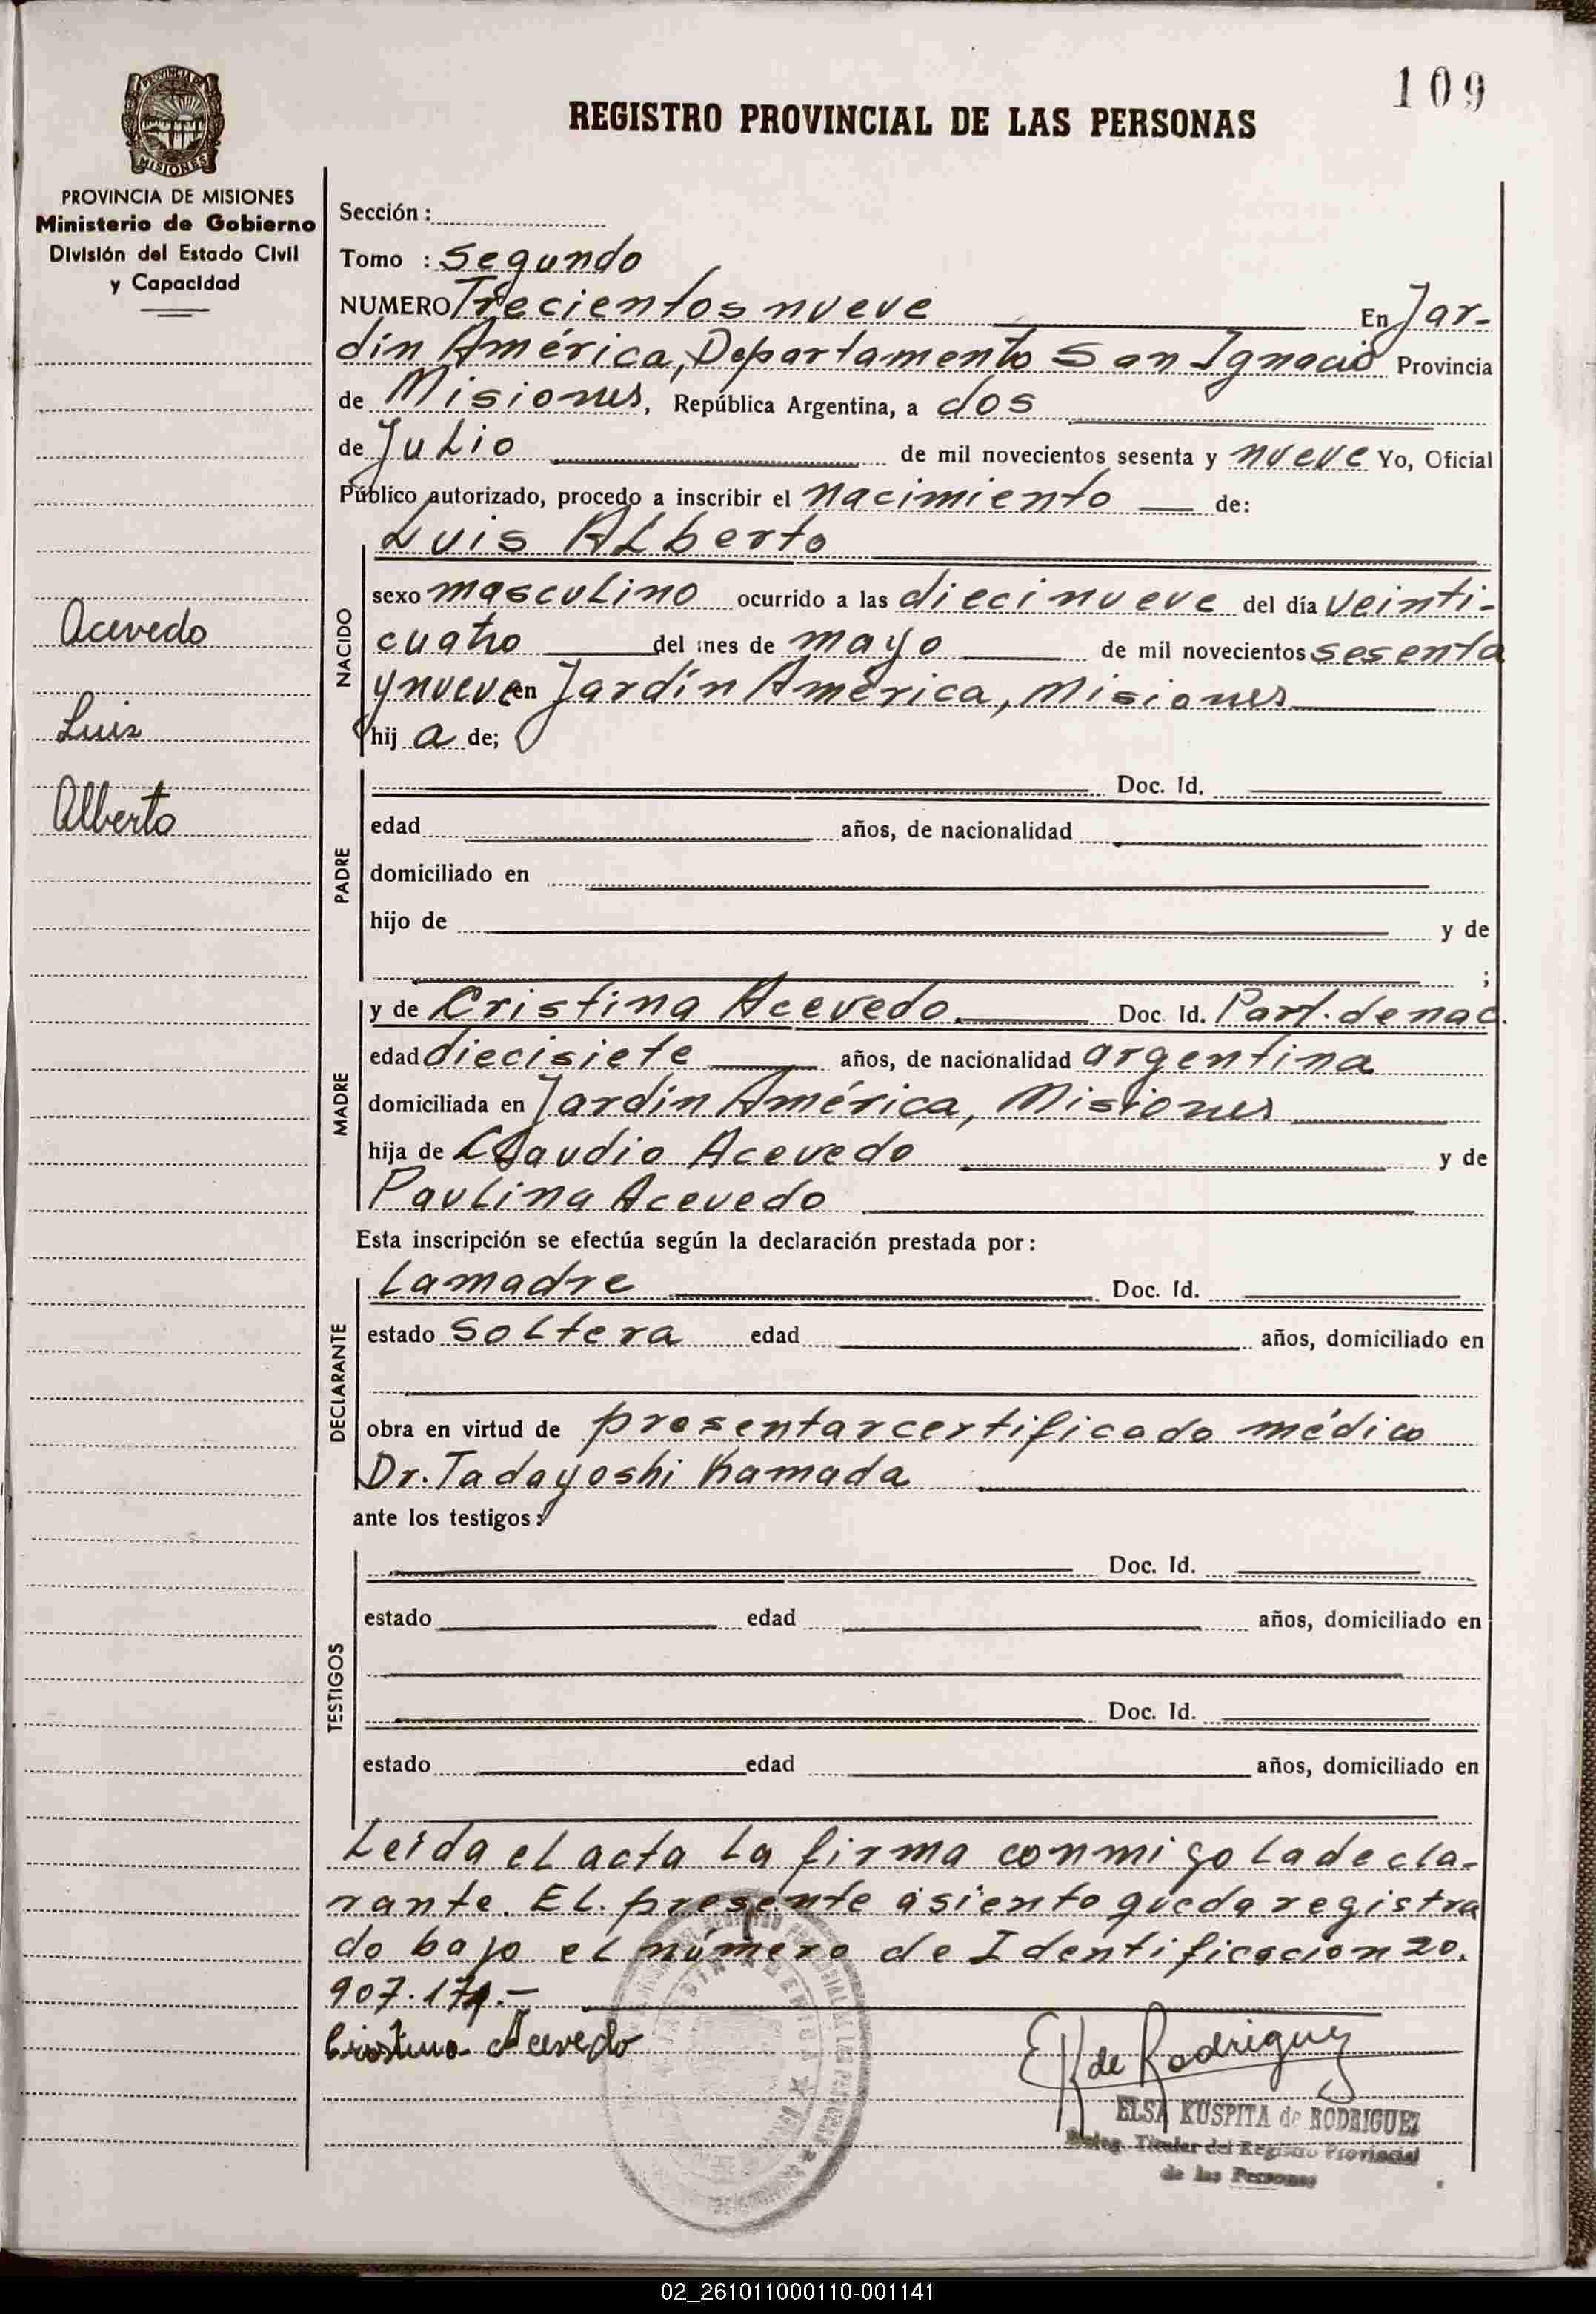 109
PROVINCIA DE
MISIONES
REGISTRO PROVINCIAL DE LAS PERSONAS
PROVINCIA DE MISIONES
Ministerio de Gobierno
División del Estado Civil
y Capacidad
Acevedo
Luis
Alberto
Sección :
Tomo : Segundo
NUMERO Trecientos nueve En Jar-
dín América, Departamento San Ignacio Provincia
de Misiones, República Argentina, a dos
de Julio de mil novecientos sesenta y nueve Yo, Oficial
Público autorizado, procedo a inscribir el nacimiento de:
Luis Alberto
NACIDO
sexo masculino ocurrido a las diecinueve del día veinti-
cuatro del mes de mayo de mil novecientos sesenta
y nueve en Jardín América, Misiones
hij a de;
PADRE
Doc. Id.
edad años, de nacionalidad
domiciliado en
hijo de y de
;
MADRE
y de Cristina Acevedo. Doc. Id. Part. de nac.
edad diecisiete años, de nacionalidad argentina
domiciliada en Jardín América, Misiones
hija de Claudio Acevedo y de
Paulina Acevedo
Esta inscripción se efectúa según la declaración prestada por :
DECLARANTE
La madre Doc. Id.
estado soltera edad años, domiciliado en
obra en virtud de presentar certificado médico
Dr. Tadayoshi Kamada
ante los testigos :
TESTIGOS
Doc. Id.
estado edad años, domiciliado en
Doc. Id.
estado edad años, domiciliado en
Leída el acta la firma conmigo la decla-
rante. El presente asiento queda registra
do bajo el número de Identificación 20.
Cristina Acevedo
E K de Rodriguez
ELSA KUSPITA de RODRIGUEZ
Deleg. Titular del Registro Provincial
de las Personas
02_261011000110-001141